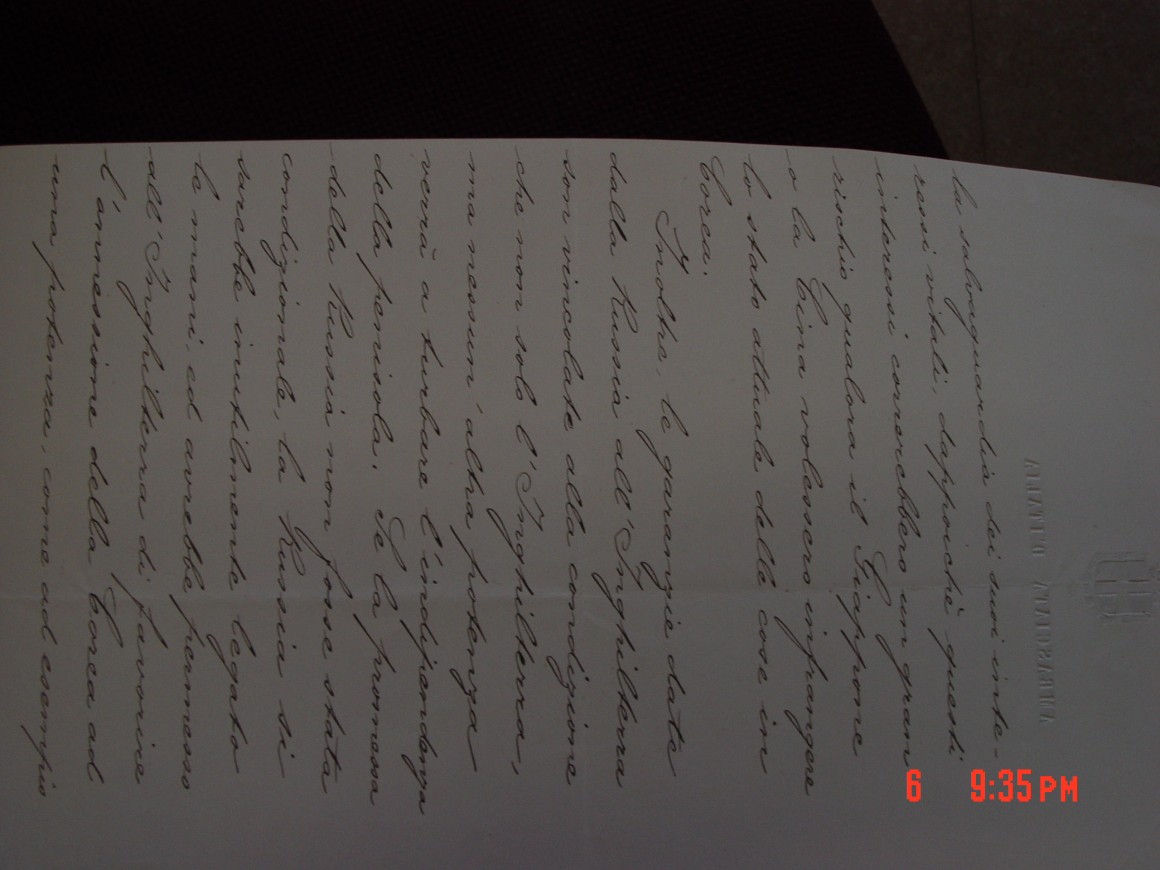 la salvaguardia dei suoi inte-
ressi vitali, dappoichè questi
interessi correrebbero un gran
rischio qualora il Giappone
o la Cina volessero infrangere
lo stato attuale delle cose in
Corea.
Inoltre, le garanzie date
dalla Russia all'Inghilterra
son vincolate alla condizione
che non solo l'Inghilterra,
ma nessun'altra potenza
verrà a turbare l'indipendenza
della penisola. Se la promessa
della Russia non fosse stata
condizionale, la Russia si
sarebbe inutilmente legato
le mani, ed avrebbe permesso
all'Inghilterra di favorire
l'annessione della Corea ad
una potenza, come ad esempio
AMBASCIATA D'ITALIA
6 9:35 PM